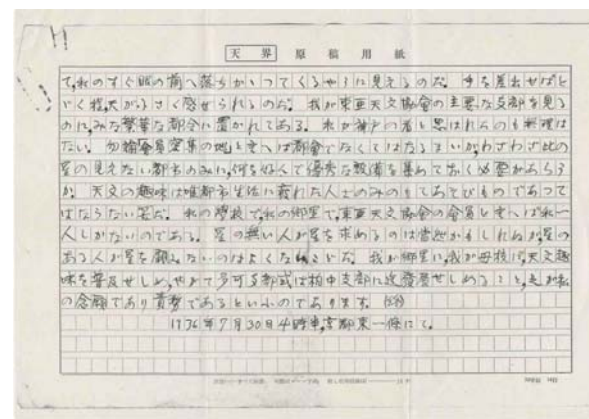 天界 原稿用紙
て、私のすぐ眼の前へ落ちかかつてくるやうに見えるのだ。手を差出せばと
どく程、天がひくく感ぜられるのだ。我が東亜天文協會の主要な支部を見る
のに、みな繁華な都会に置かれてある。私が神戸の者と思はれたのも無理は
ない。勿論會員募集の地と言へば都會でなくてはなるまいが、わざわざ此の
星の見えない都市のみに、何を好んで優秀な設備を集めておく必要があらう
か。天文の趣味は唯都市生活に疲れた人士のみのもてあそびものであつて
はならない筈だ。私の學校で、私の郷里で、東亜天文協會の會員と言へば私一
人しかないのである。星の無い人が星を求めるのは當然かもしれぬが、星の
ある人が星を顧みないのはよくないことだ。我が郷里に、我が母校に、天文趣
味を普及せしめ、やがて多可支部或は播中支部に迄發展せしめること、之が私
の念願であり責務であるといふのであります。
1936年7月30日4時半京都東一條にて。